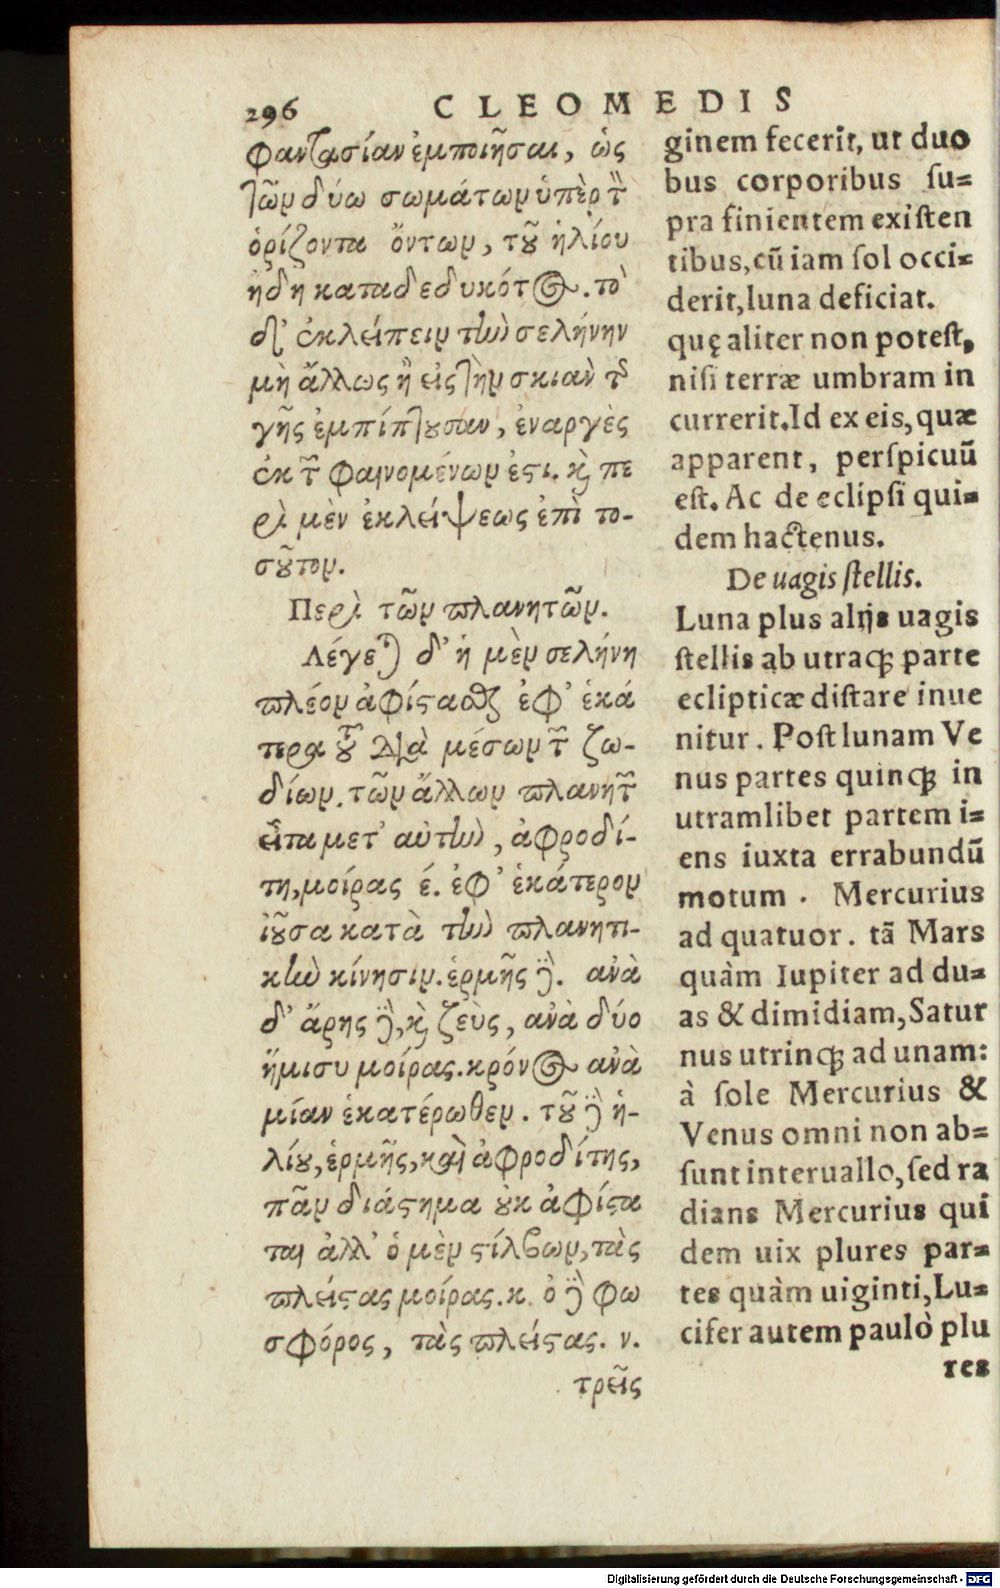 296 CLEOMEDIS
φαντασίαν ἐμποιῆσαι, ὡς
τῶν δύω σωμάτων ὑπὲρ τὸν
ὁρίζοντα ὄντων, τοῦ ἡλίου
ἤδη καταδεδυκότος. τὸ
δ' ἐκλείπειν τὴν σελήνην
μὴ ἄλλως ἢ εἰς τὴν σκιὰν τῆς
γῆς ἐμπίπτουσαν, ἐναργὲς
ἐκ τῶν φαινομένων ἐστι. καὶ πε
ρὶ μὲν ἐκλείψεως ἐπὶ το-
σοῦτον.
Περὶ τῶν πλανητῶν.
Λέγεται δ' ἡ μὲν σελήνη
πλέον ἀφίστασθαι ἐφ' ἑκά
τερα τοῦ διὰ μέσων τῶν ζω-
δίων. τῶν ἄλλων πλανητῶν
εἶτα μετ' αὐτὴν, ἀφροδί-
τη, μοίρας έ. ἐφ' ἑκάτερον
ἰοῦσα κατὰ τὴν πλανητι-
κὴν κίνησιν. ἑρμῆς δ. ἀνὰ
δ' ἄρης δὲ, καὶ ζεὺς, ἀνὰ δύο
ἥμισυ μοίρας. κρόνος ἀνὰ
μίαν ἑκατέρωθεν. τοῦ δὲ ἡ-
λίου, ἑρμῆς, καὶ ἀφροδίτης,
πᾶν διάστημα οὐκ ἀφίστα
ται ἀλλ' ὁ μὲν στίλβων, τὰς
πλείστας μοίρας. κ. ὁ δὲ φω
σφόρος, τὰς πλείστας. ν.
τρεῖς
ginem fecerit, ut duo
bus corporibus su=
pra finientem existen
tibus, cũ iam sol occi=
derit, luna deficiat.
quę aliter non potest,
nisi terræ umbram in
currerit. Id ex eis, quæ
apparent, perspicuũ
est. Ac de eclipsi qui=
dem hactenus.
De uagis stellis.
Luna plus alijs uagis
stellis ab utraq; parte
eclipticæ distare inue
nitur. Post lunam Ve
nus partes quinq; in
utramlibet partem i=
ens iuxta errabundũ
motum. Mercurius
ad quatuor. tã Mars
quàm Iupiter ad du=
as & dimidiam, Satur
nus utrinq; ad unam:
à sole Mercurius &
Venus omni non ab=
sunt interuallo, sed ra
dians Mercurius qui
dem uix plures par=
tes quàm uiginti, Lu=
cifer autem paulò plu
res
Digitalisierung gefördert durch die Deutsche Forschungsgemeinschaft - DFG